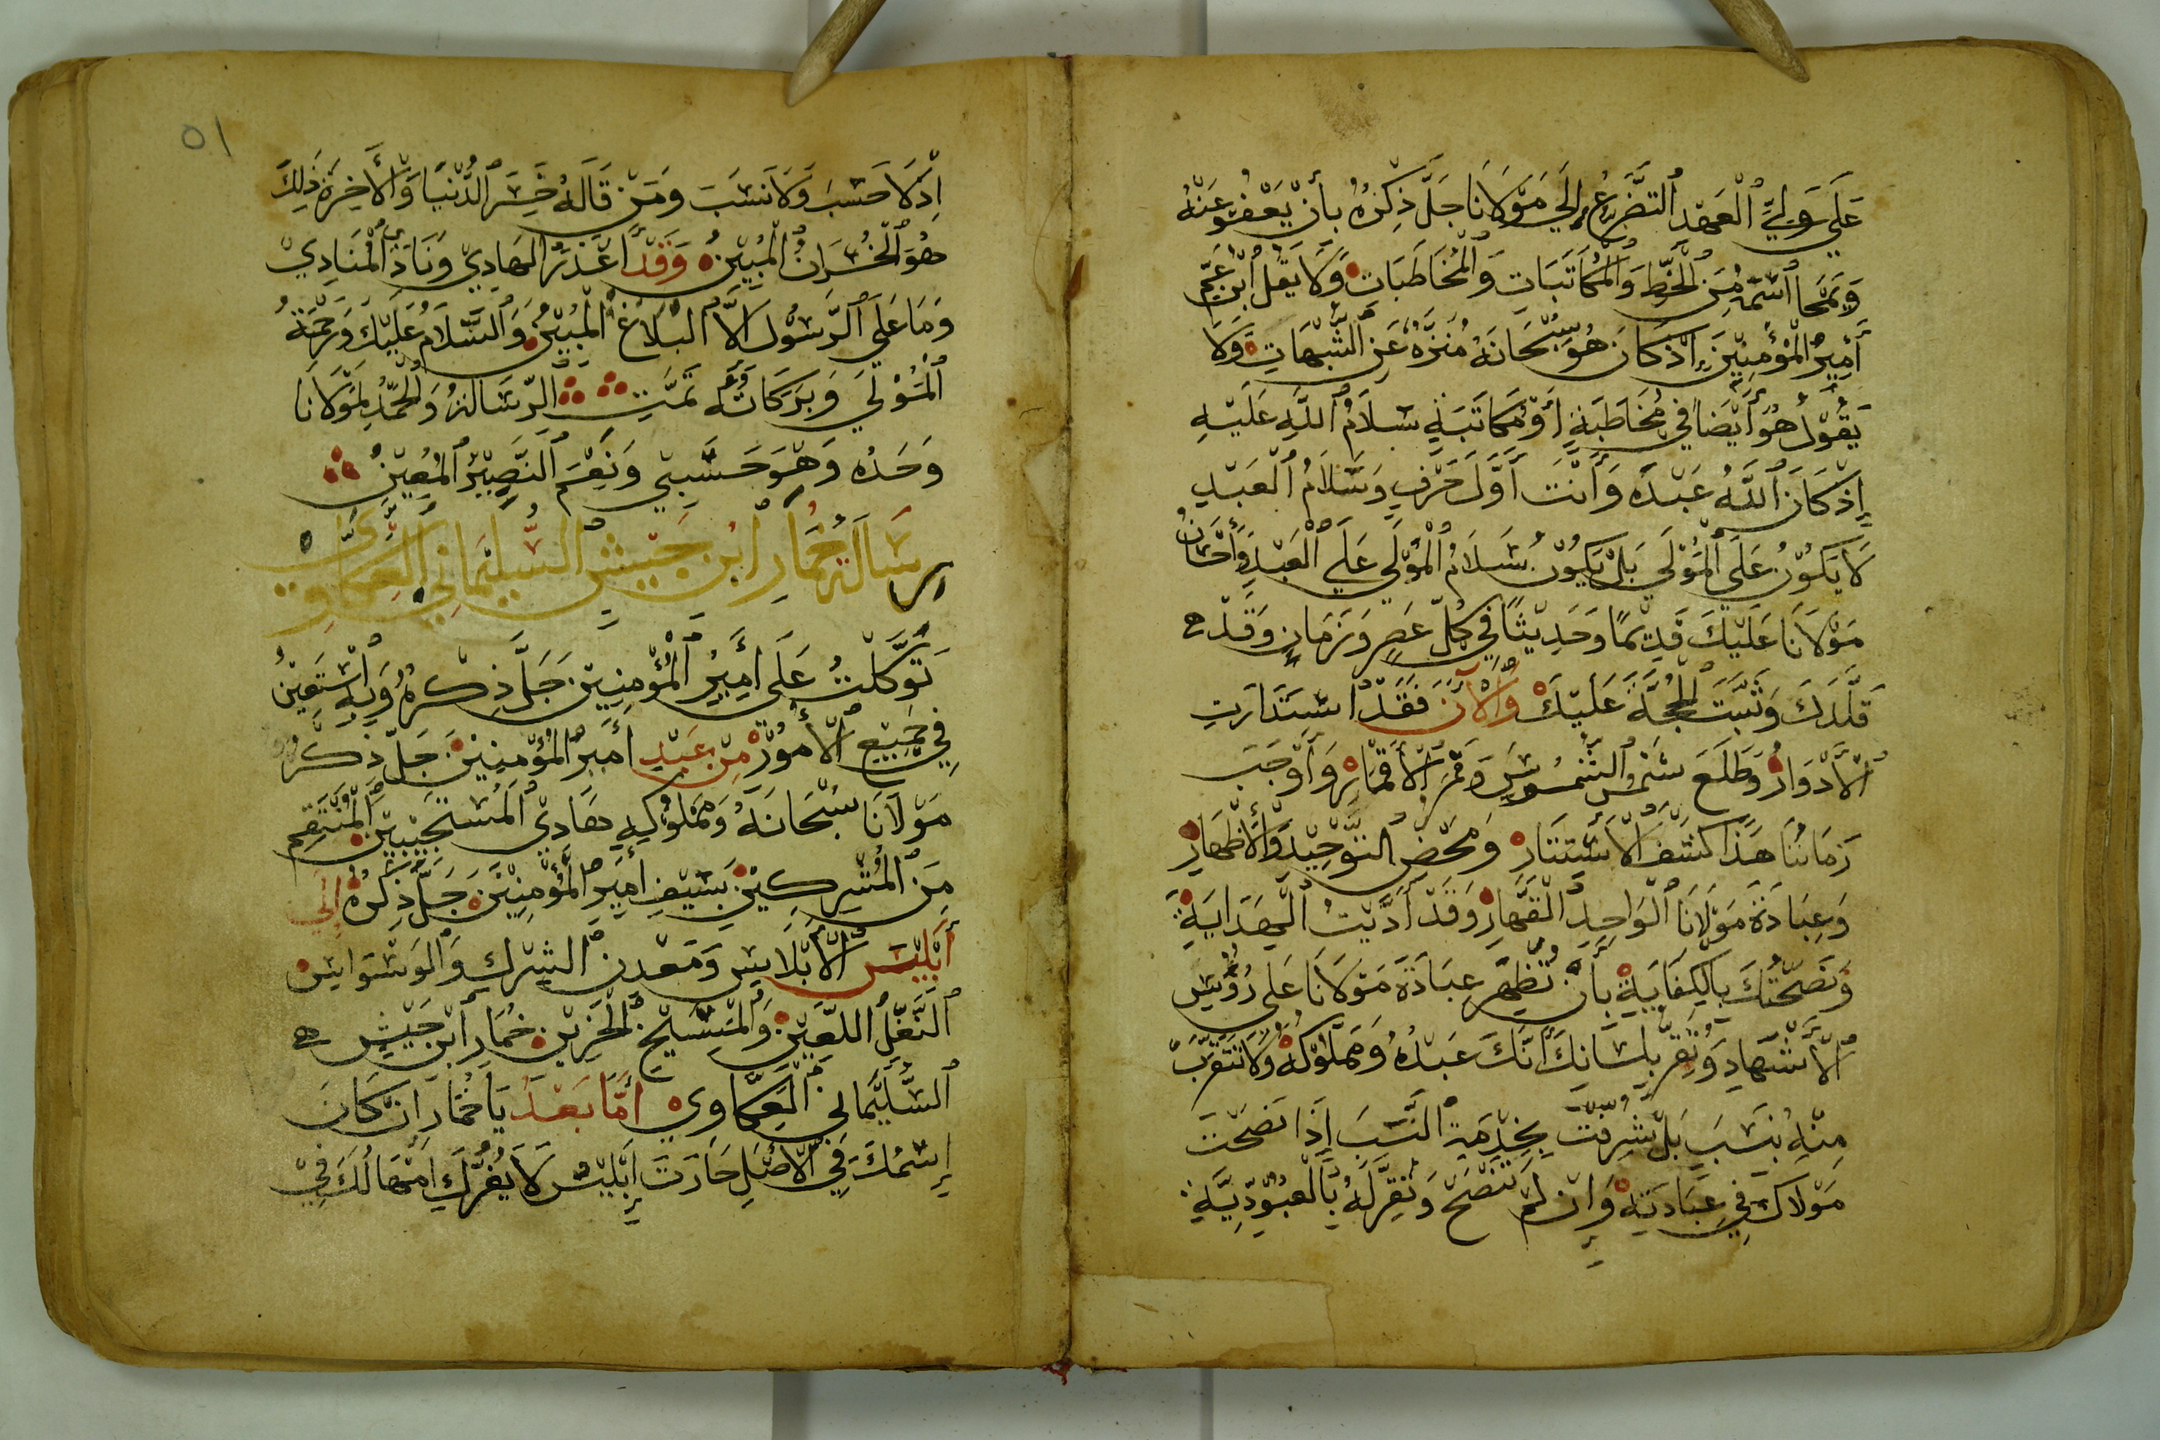 عَلَي وَلِيِّ ٱلْعَهْدِ ٱلتَّضَرُّعُ إِلَي مَوْلَانَا جَلَّ ذِكْرُهُ بِأَنْ يَعْفُو عَنْهُ
وَيَمْحَا ٱسْمَهُ مِنَ ٱلْخَطِّ وَٱلْمُكَاتَبَاتِ وَٱلْمُخَاطَبَاتِ وَلَا يَقُلِ ٱبْن عَمِّ
أَمِيرِ ٱلْمُؤْمِنِيْنَ إِذْ كَانَ هُوَ سُبْحَانَهُ مُنَزَّهٌ عَنِ ٱلشُّبُهَاتِ وَلَا
يَقُوْل هُوَ أَيْضَا فِي مُخَاطَبَةٍ أَوْ مُكَاتَبَةٍ سَلَامُ ٱللَّهِ عَلَيْهِ
إِذْ كَانَ ٱللَّهُ عَبْدَهُ وَأَنْتَ أَوَّلَ حَرْفٍ وَسَلَامُ ٱلْعَبْدِ
لَا يَكُوْنُ عَلَي ٱلْمَوْلَي بَلْ يَكُوْنُ سَلَامُ ٱلْمَوْلَي عَلَي ٱلْعَبْدِ وَإِحْسَانُ
مَوْلَانَا عَلَيْكَ قَدِيْمًا وَحَدِيْثًا فِي كُلِّ عَصْرٍ وَزَمَانٍ وَقَدْ
قَلَّدَكَ وَثَبَّتَ ٱلْحُجَّةَ عَلَيْكَ وَٱلْآنَ فَقَدْ ٱسْتَدَارَتِ
ٱلْأَدْوَارُ وَطَلَعَ شَمْسُ ٱلشُّمُوسِ وَقَمَرُ ٱلْأَقْمَارِ وَأَوْجَبَ
زَمَانُنَا هَذَا كَشْفَ ٱلْاسْتِتَارِ وَمَحْضَ ٱلتَّوْحِيْدِ وَٱلْأَظْهَارِ
وَعِبَادَةَ مَوْلَانَا ٱلْوَاحِدِ ٱلْقَهَّارِ وَقَدْ أَدَّيْتُ ٱلْهِدَايَةَ
وَنَصَحْتُكَ بِالْكِفَايَةِ بِأَنْ تُظْهِرَ عِبَادَةَ مَوْلَانَا عَلَي رُؤُسِ
ٱلْأَشْهَادِ وَتُقِرَّ بِلِسَانِكَ أَنَّكَ عَبْدُهُ وَمَمْلُوْكُهُ وَلَا تَتَقَرَّبَ
مِنْهُ بِنَسَبَ بَلْ شُرِفْتَ بِخِدْمَةِ ٱلنَّسَبَ إِذَا نَصَحْتَ
مَوْلَاكَ فِي عِبَادَتِهِ وَإِنْ لَمْ تَنْصَحْ وَتُقِرَّ لَهُ بِالْعُبُوْدِيَّةِ
٥١
إِذْ لَا حَسَبَ وَلَا نَسَبَ وَمَنْ قَالَهُ خَسِرَ ٱلدُّنْيَا وَٱلْأَخِرَةَ ذَلِكَ
هُوَ ٱلْخُسْرَانُ ٱلْمُبِيْنُ وَقَدْ أَعْذَرَ ٱلْهَادِيْ وَنَادَى ٱلْمُنَادِيْ
وَمَا عَلَي ٱلرَّسُوْلِ الَّا ٱلْبَلَاغُ ٱلْمُبِيْنُ وَٱلسَّلَامُ عَلَيْكَ وَرَحْمَةُ
ٱلْمَوْلَي وَبَرَكَاتُهُ تَمَّتِ ٱلرِّسَالَةُ وَٱلْحَمْدُ لِمَوْلَانَا
وَحْدَهُ وَهُوَ حَسْبِيْ وَنِعْمَ ٱلنَّصِيْرُ ٱلْمُعِيْنُ
رِسَالَةُ خُمَارِ ٱبْنِ جَيْشٍ ٱلسُّلَيْمَانِي ٱلْعَكَّاوِي
تَوَكَّلْتُ عَلَى أَمِيْرِ ٱلْمُؤْمِنِيْنَ جَلَّ ذِكْرُهُ وَبِهِ أَسْتَعِيْنُ
فِي جَمِيْعِ ٱلْأُمُوْرِ مِنْ عَبْدِ أَمِيْرِ ٱلْمُؤْمِنِيْنَ جَلَّ ذِكْرُهُ
مَوْلَانَا سُبْحَانَهُ وَمَمْلُوْكِهِ هَادِي ٱلْمُسْتَجِيْبِيْنَ ٱلْمُنْتَقِمِ
مِنَ ٱلْمُشْرِكِيْنَ بِسَيْفِ أَمِيْرِ ٱلْمُؤْمِنِيْنَ جَلَّ ذِكْرُهُ إِلَى
أَبْلِيْسِ ٱلْأَبَلَاسِ وَمَعْدِنِ ٱلشِّرْكِ وَٱلْوَسْوَاسِ
ٱلنَّغْلِ ٱللَّعِيْنِ وَٱلْمَسِيْحِ ٱلْحَزِيْنِ خُمَارِ ٱبْنِ جَيْشٍ
ٱلسُّلَيْمَانِي ٱلْعَكَّاوِي أَمَّا بَعْدُ يَا خُمَارُ انْ كَانَ
إِسْمُكَ فِي ٱلْأَصْلِ حَارَتَ إِبْلِيْسُ لَا يَغُرُّكَ امْهَالُكَ فِيْ